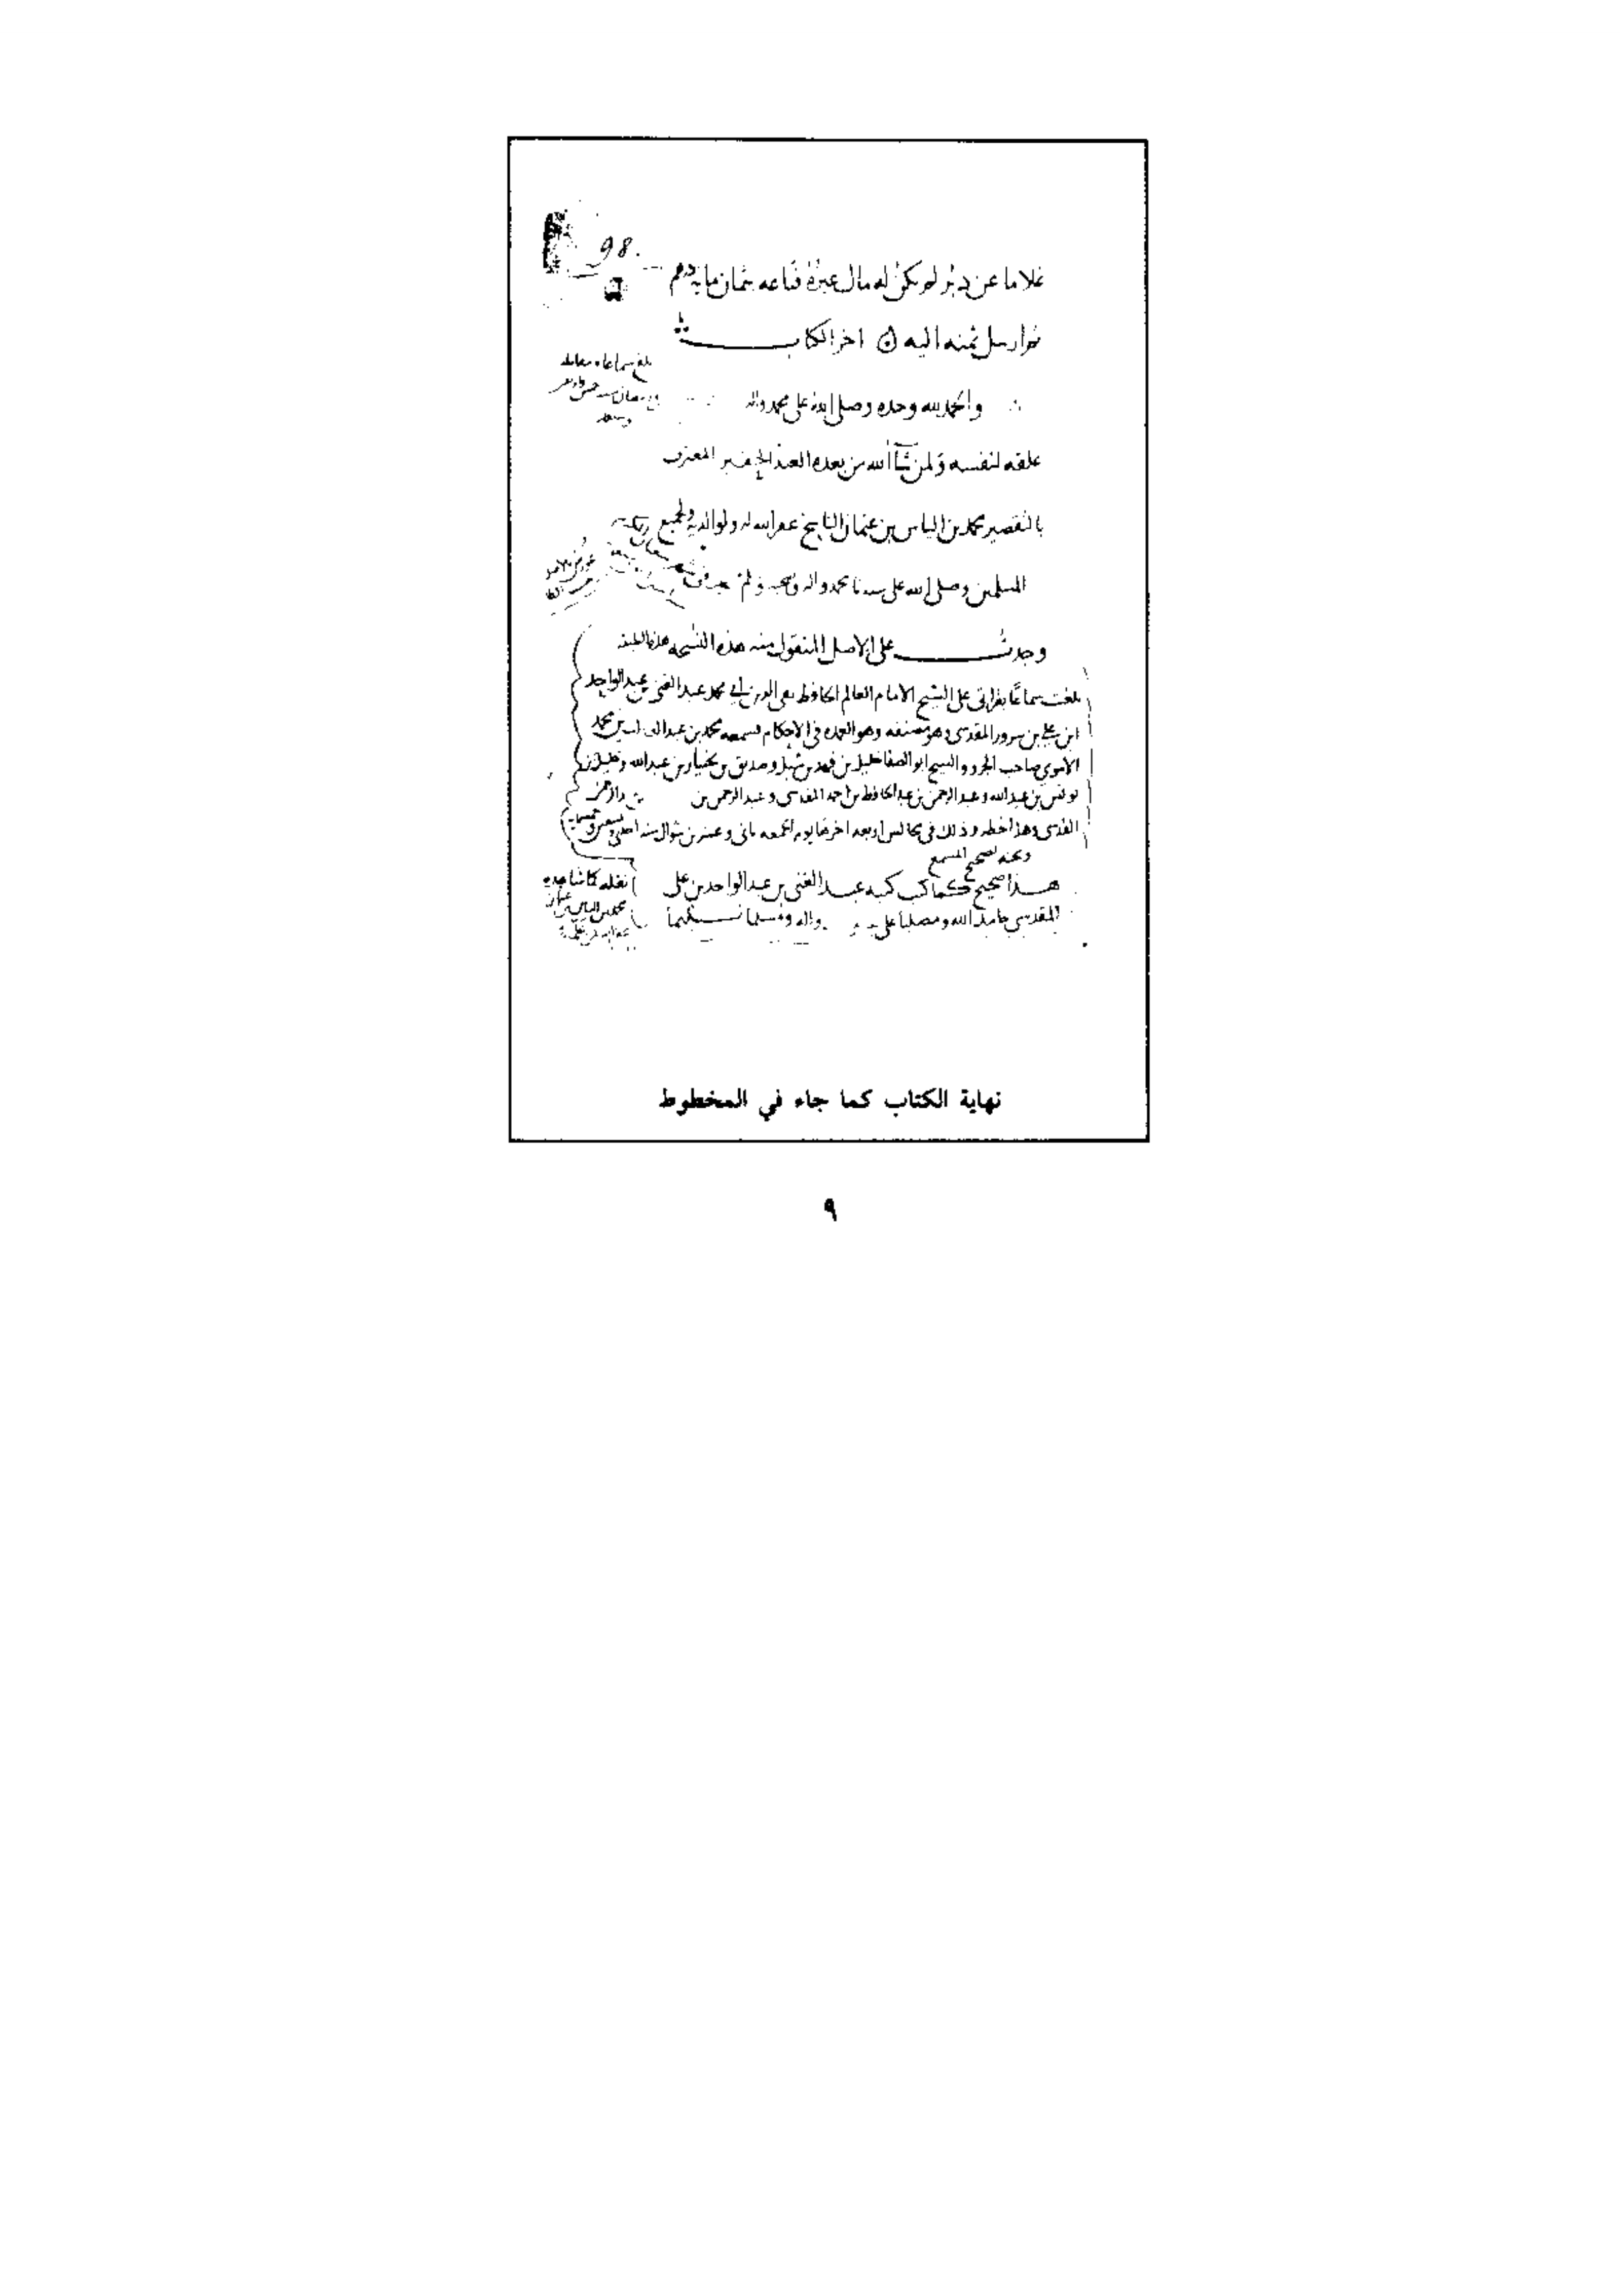 98.
غلاما عن دبر لم يكن له مال غيره فباعه بثمان مائة درهم
ثم ارسل ثمنه اليه اخر الكتاب
والحمد لله وحده وصلى الله على محمد واله
علقه لنفسه ولمن شآ الله من بعده العبد الفقير المعترف
بالتقصير محمد بن الياس بن عثمان الناسخ عفر الله له ولوالديه ولجميع
المسلمين وصلى الله على سيدنا محمد واله وصحبه وسلم
وجدت على الاصل المنقول منه هذه النسخه هذه الطبقه
بلغت سماعًا بقراتى على الشيخ الامام العالم الحافظ تقى الدين ابي محمد عبد الغنى بن عبد الواحد
ابن على بن سرور المقدسى وهو مصنفه وهو العمده فى الاحكام فسمعه محمد بن عبد الله بن محمد
الاموى صاحب الجزو والشيخ ابو الصفا خليل بن فهد بن وصديق بن بختيار بن عبد الله وخليل بن
يونس بن عبد الله وعبد الرحمن بن عبد الحافظ بن احمد المقدسى وعبد الرحمن بن
المقدسى وهذا خطه وذلك فى مجالس اربعه اخرها يوم الجمعه ثانى وعشرين شوال سنه
هذا صحيح كما كتب كتبه عبد الغنى بن عبد الواحد بن على
المقدسى حامدا لله ومصليا على واله ومسلما تسليما
نقله كما شاهده
محمد بن الياس بن عثمان
نهاية الكتاب كما جاء في المخطوط
٩